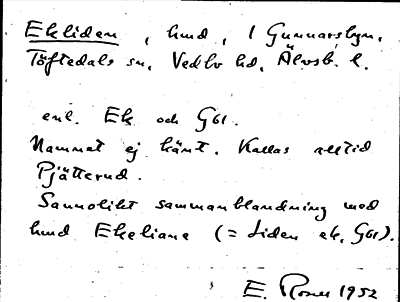 Ekliden, hmd, 1 Gunnarsbyn,
Töftedals sn, Vedbo hd, Älvsb. l.
enl. Ek och Gbl.
Namnet ej känt. Kallas alltid
Pjätterud.
Sannolikt sammanblandning med
hmd Ekeliane (= Liden ek, Gbl).
E. 1952